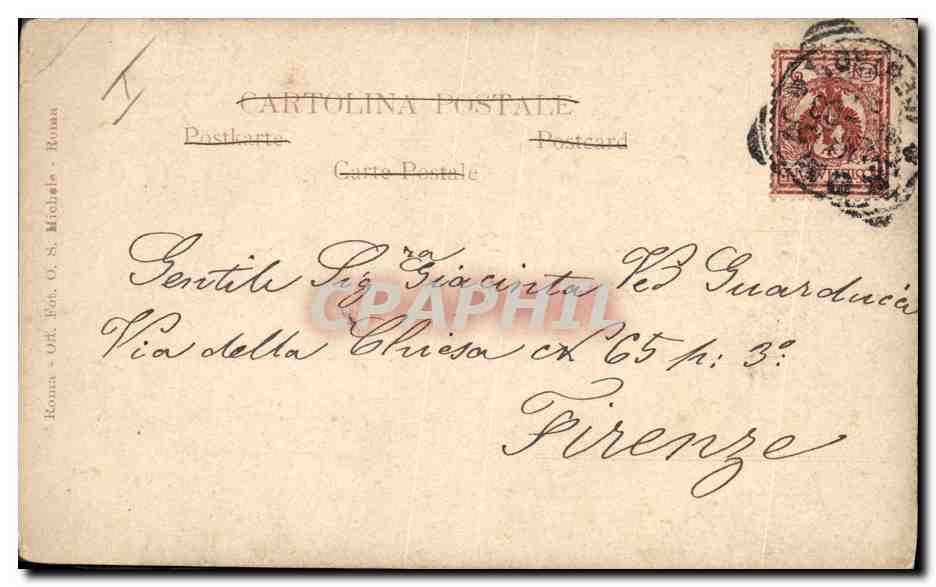 CARTOLINA POSTALE
Postkarte Postcard
Carte Postale
Roma - Off. Fot. O. S. Michele - Roma
Gentile Sig.ra Giacinta Ved Guarducci
CPAPHIL
Via della Chiesa N 65 p: 3º
Firenze